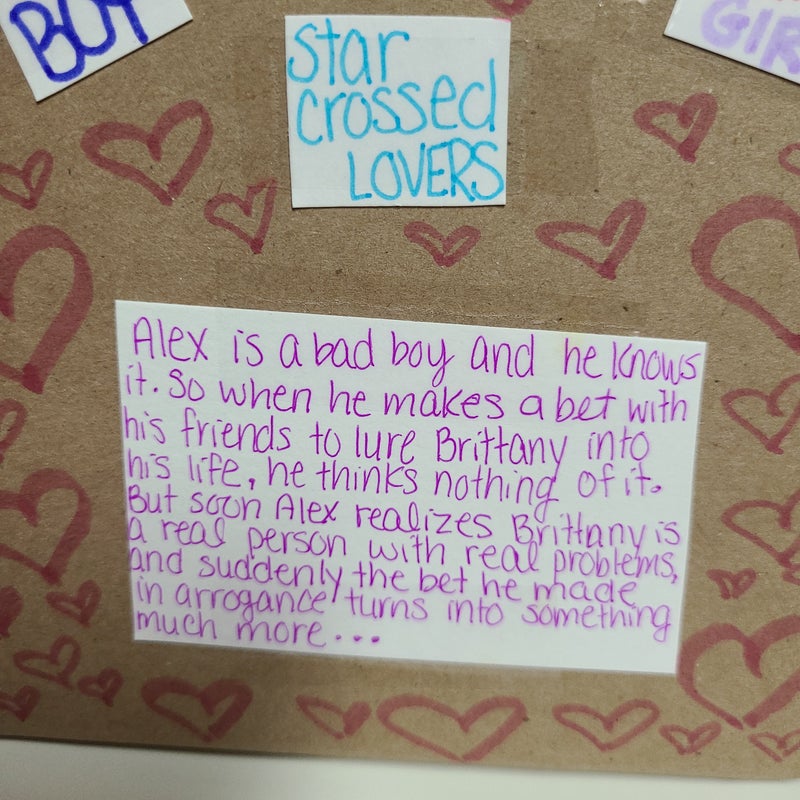 BOY
star
crossed
LOVERS
GIR
Alex is a bad boy and he knows
it. So when he makes a bet with
his friends to lure Brittany into
his life, he thinks nothing of it.
But soon Alex realizes Brittany is
a real person with real problems,
and suddenly the bet he made
in arrogance turns into something
much more...